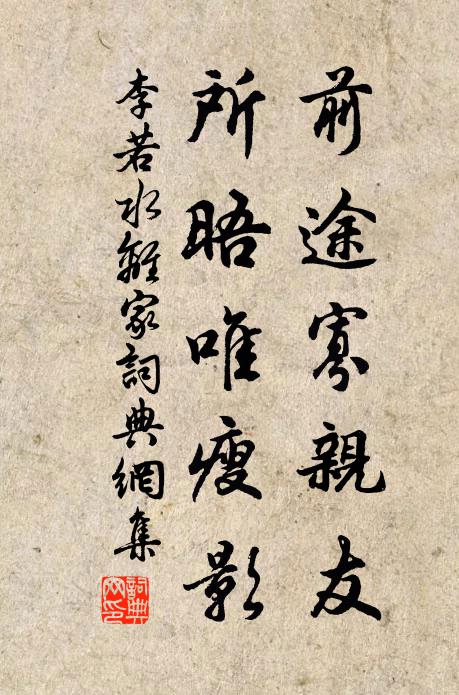 前途寡親友
所晤唯瘦影
李若水離家詞典網集
詞典网印